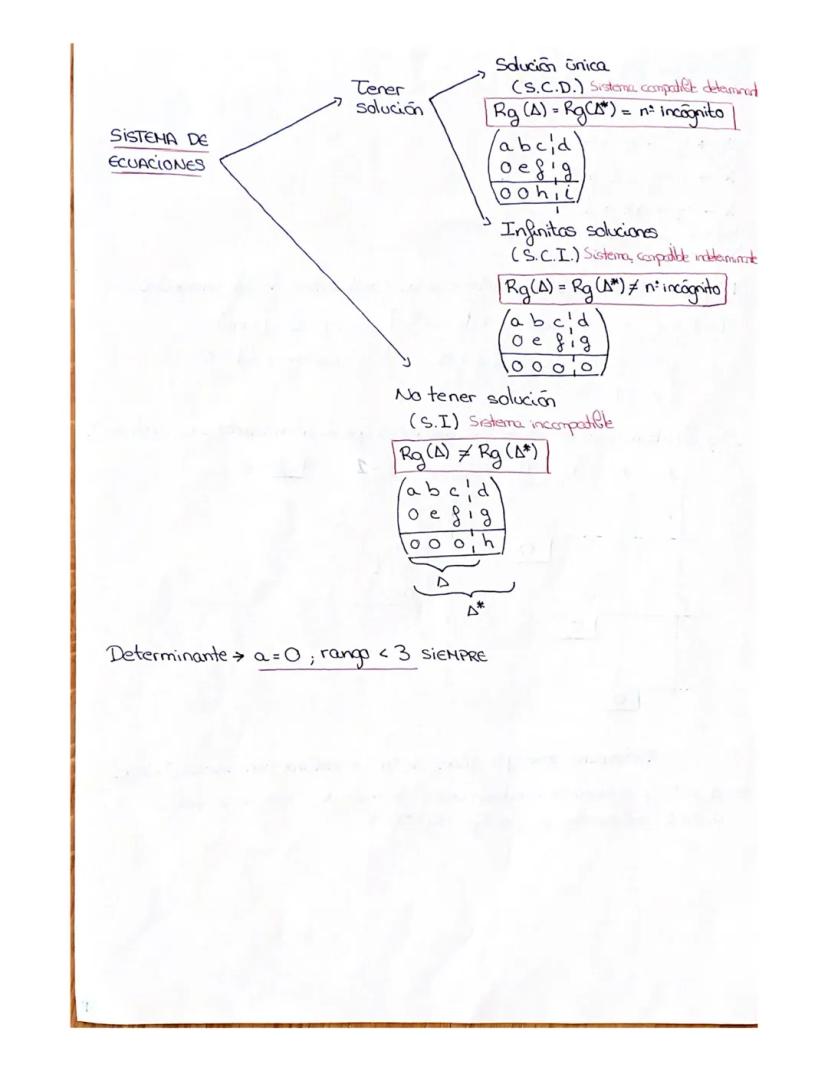 SISTEMA DE
ECUACIONES
Tener
solución
Solución única
(S.C.D.) Sistema compatible determinad
Rg (A) = Rg(A*) = nº incógnito
a b c d
0 e f g
0 0 h i
Infinitas soluciones
(S.C.I.) Sistema compatible indeterminado
Rg(A) = Rg(A*) ≠ nº incógnito
a b c d
0 e f g
0 0 0 0
No tener solución
(S.I) Sistema incompatible
Rg(A) ≠ Rg(A*)
a b c d
0 e f g
0 0 0 h
A
A*
Determinante → a=0 ; rango < 3 SIEMPRE